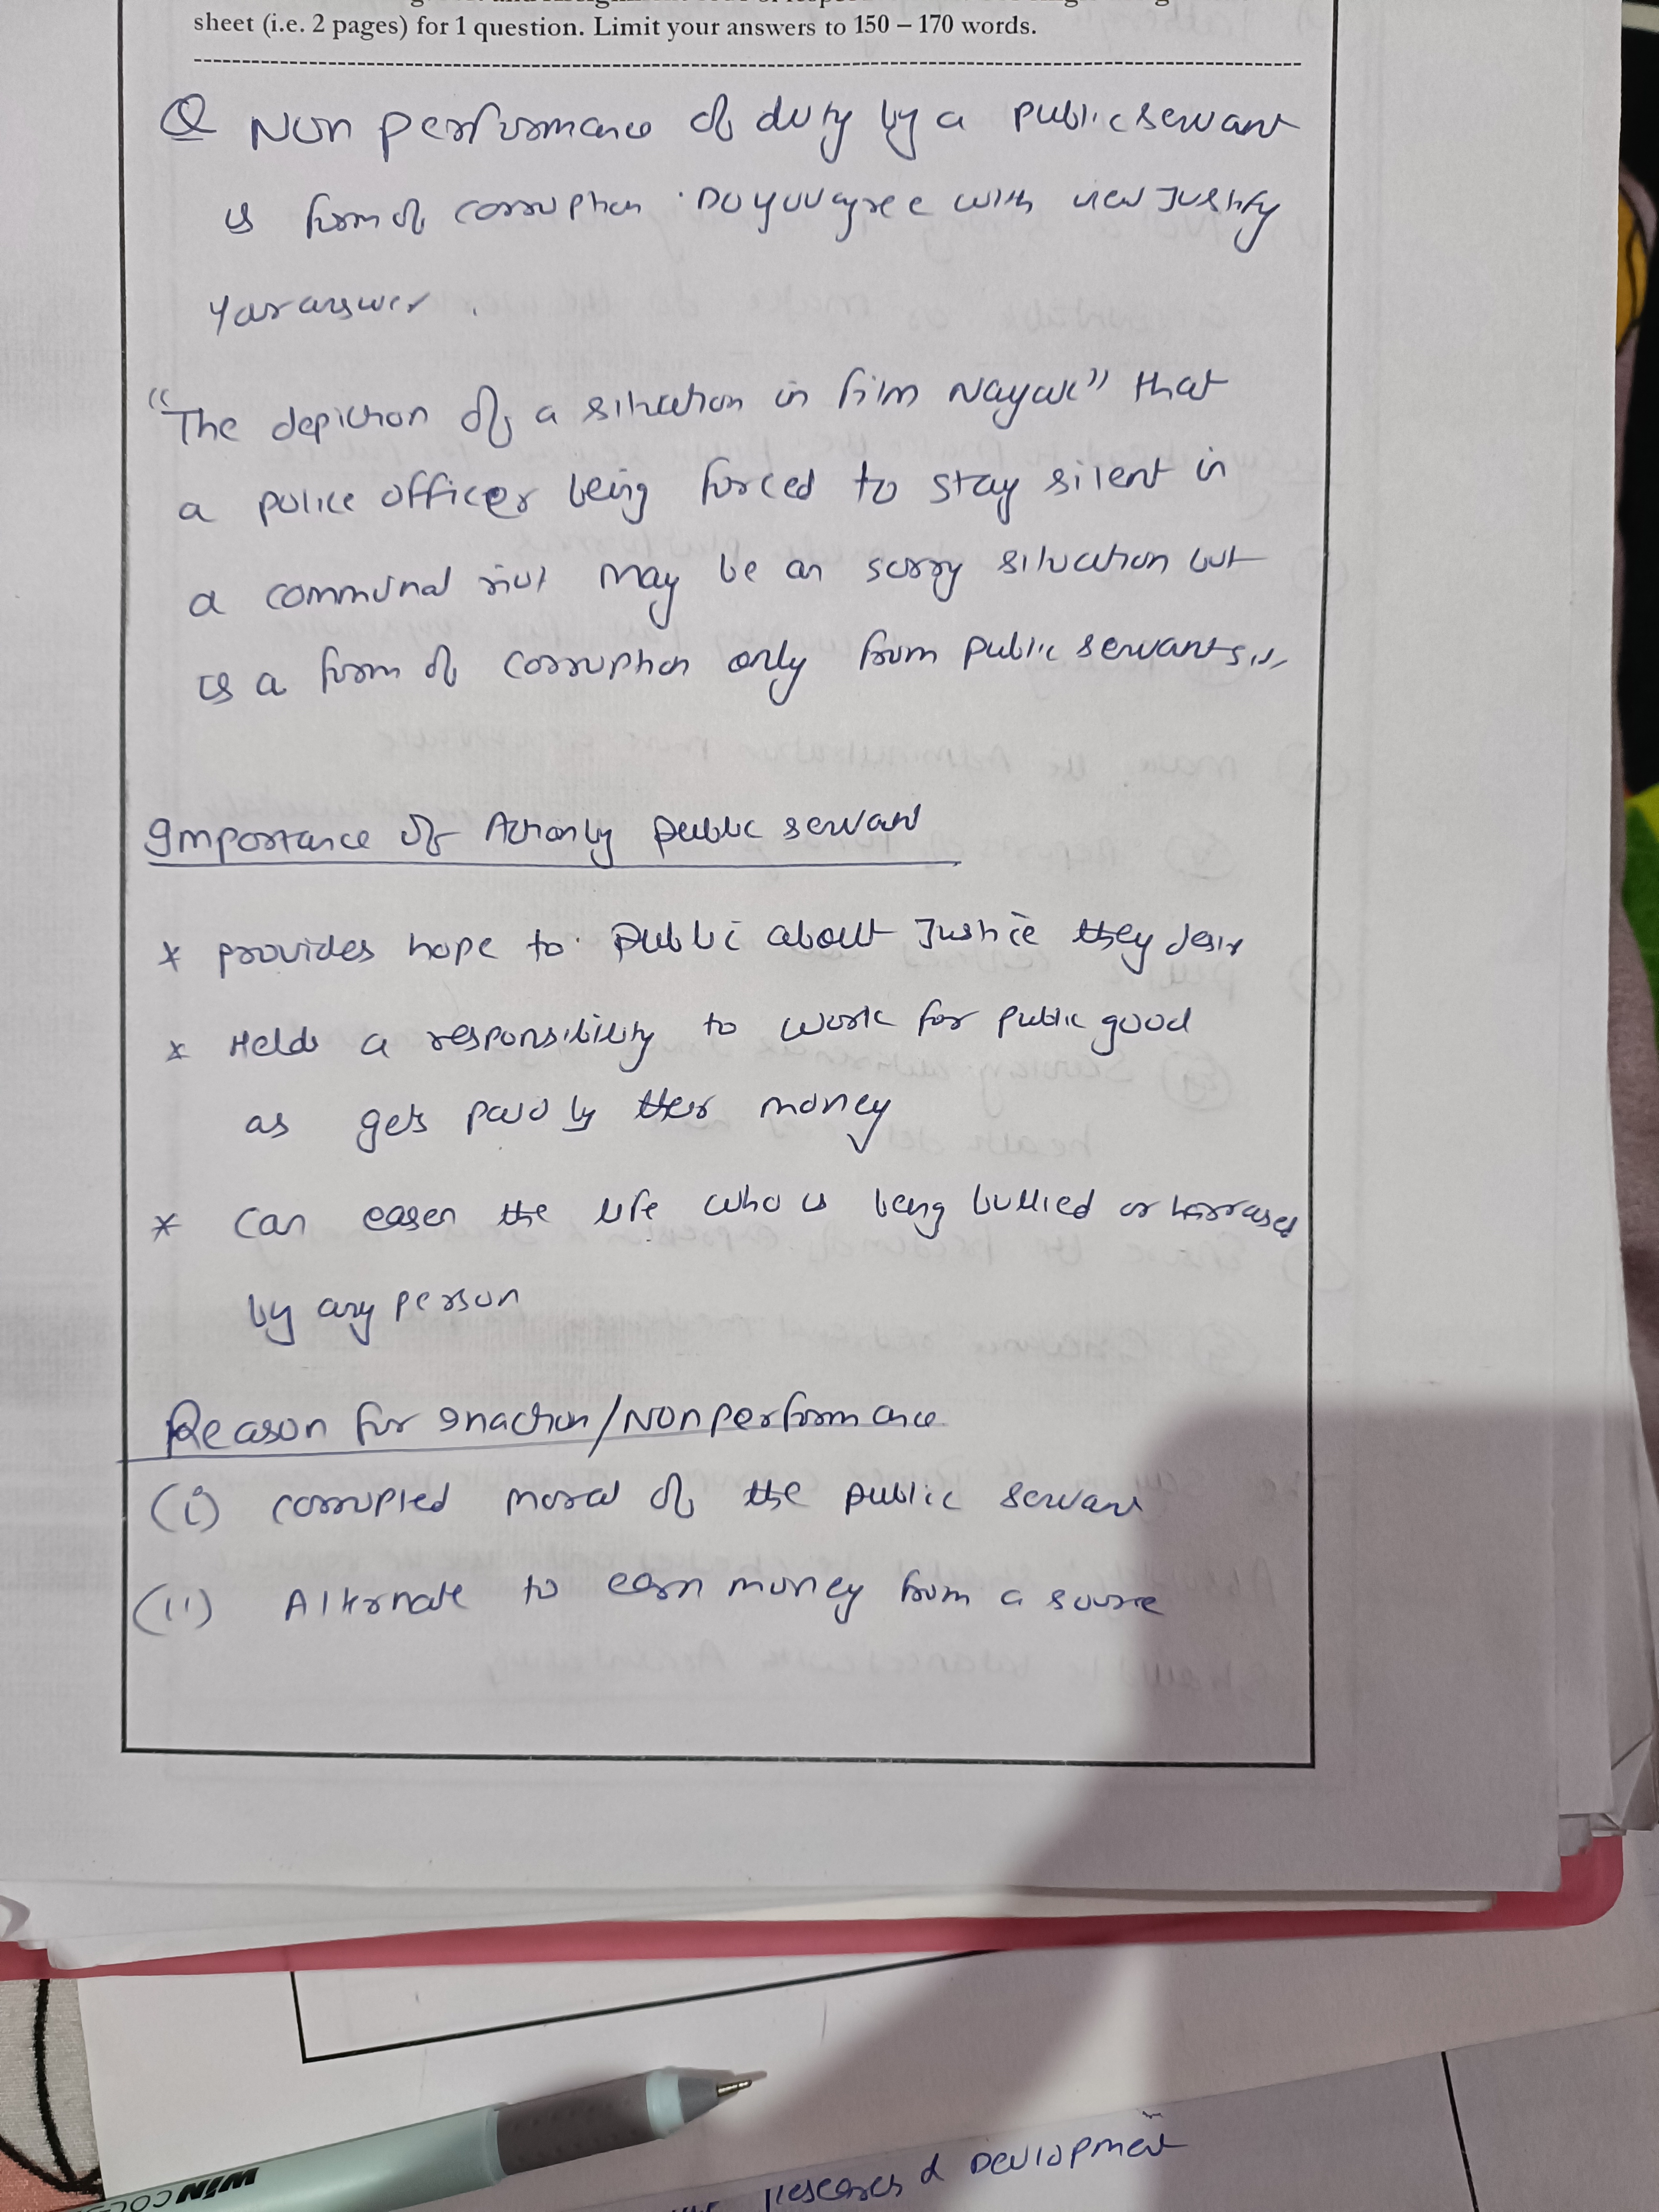 sheet (i.e. 2 pages) for 1 question. Limit your answers to 150 – 170 words.
Q Non performance of duty by a public servant
is form of corruption . Do you agree with view Justify
your answer .
"The depiction of a situation in film Nayak" that
a police officer being forced to stay silent in
a communal riot may be an sorry situation but
is a form of corruption only from public servants
Importance of Action by public servant
* provides hope to public about Justice they desire
* Holds a responsibility to work for public good
as gets paid by their money
* Can easen the life who is being bullied or harrased
by any person
Reason for Inaction/Nonperformance
(i) corrupted moral of the public servant
(ii) Alternate to earn money from a source
WIN
Development